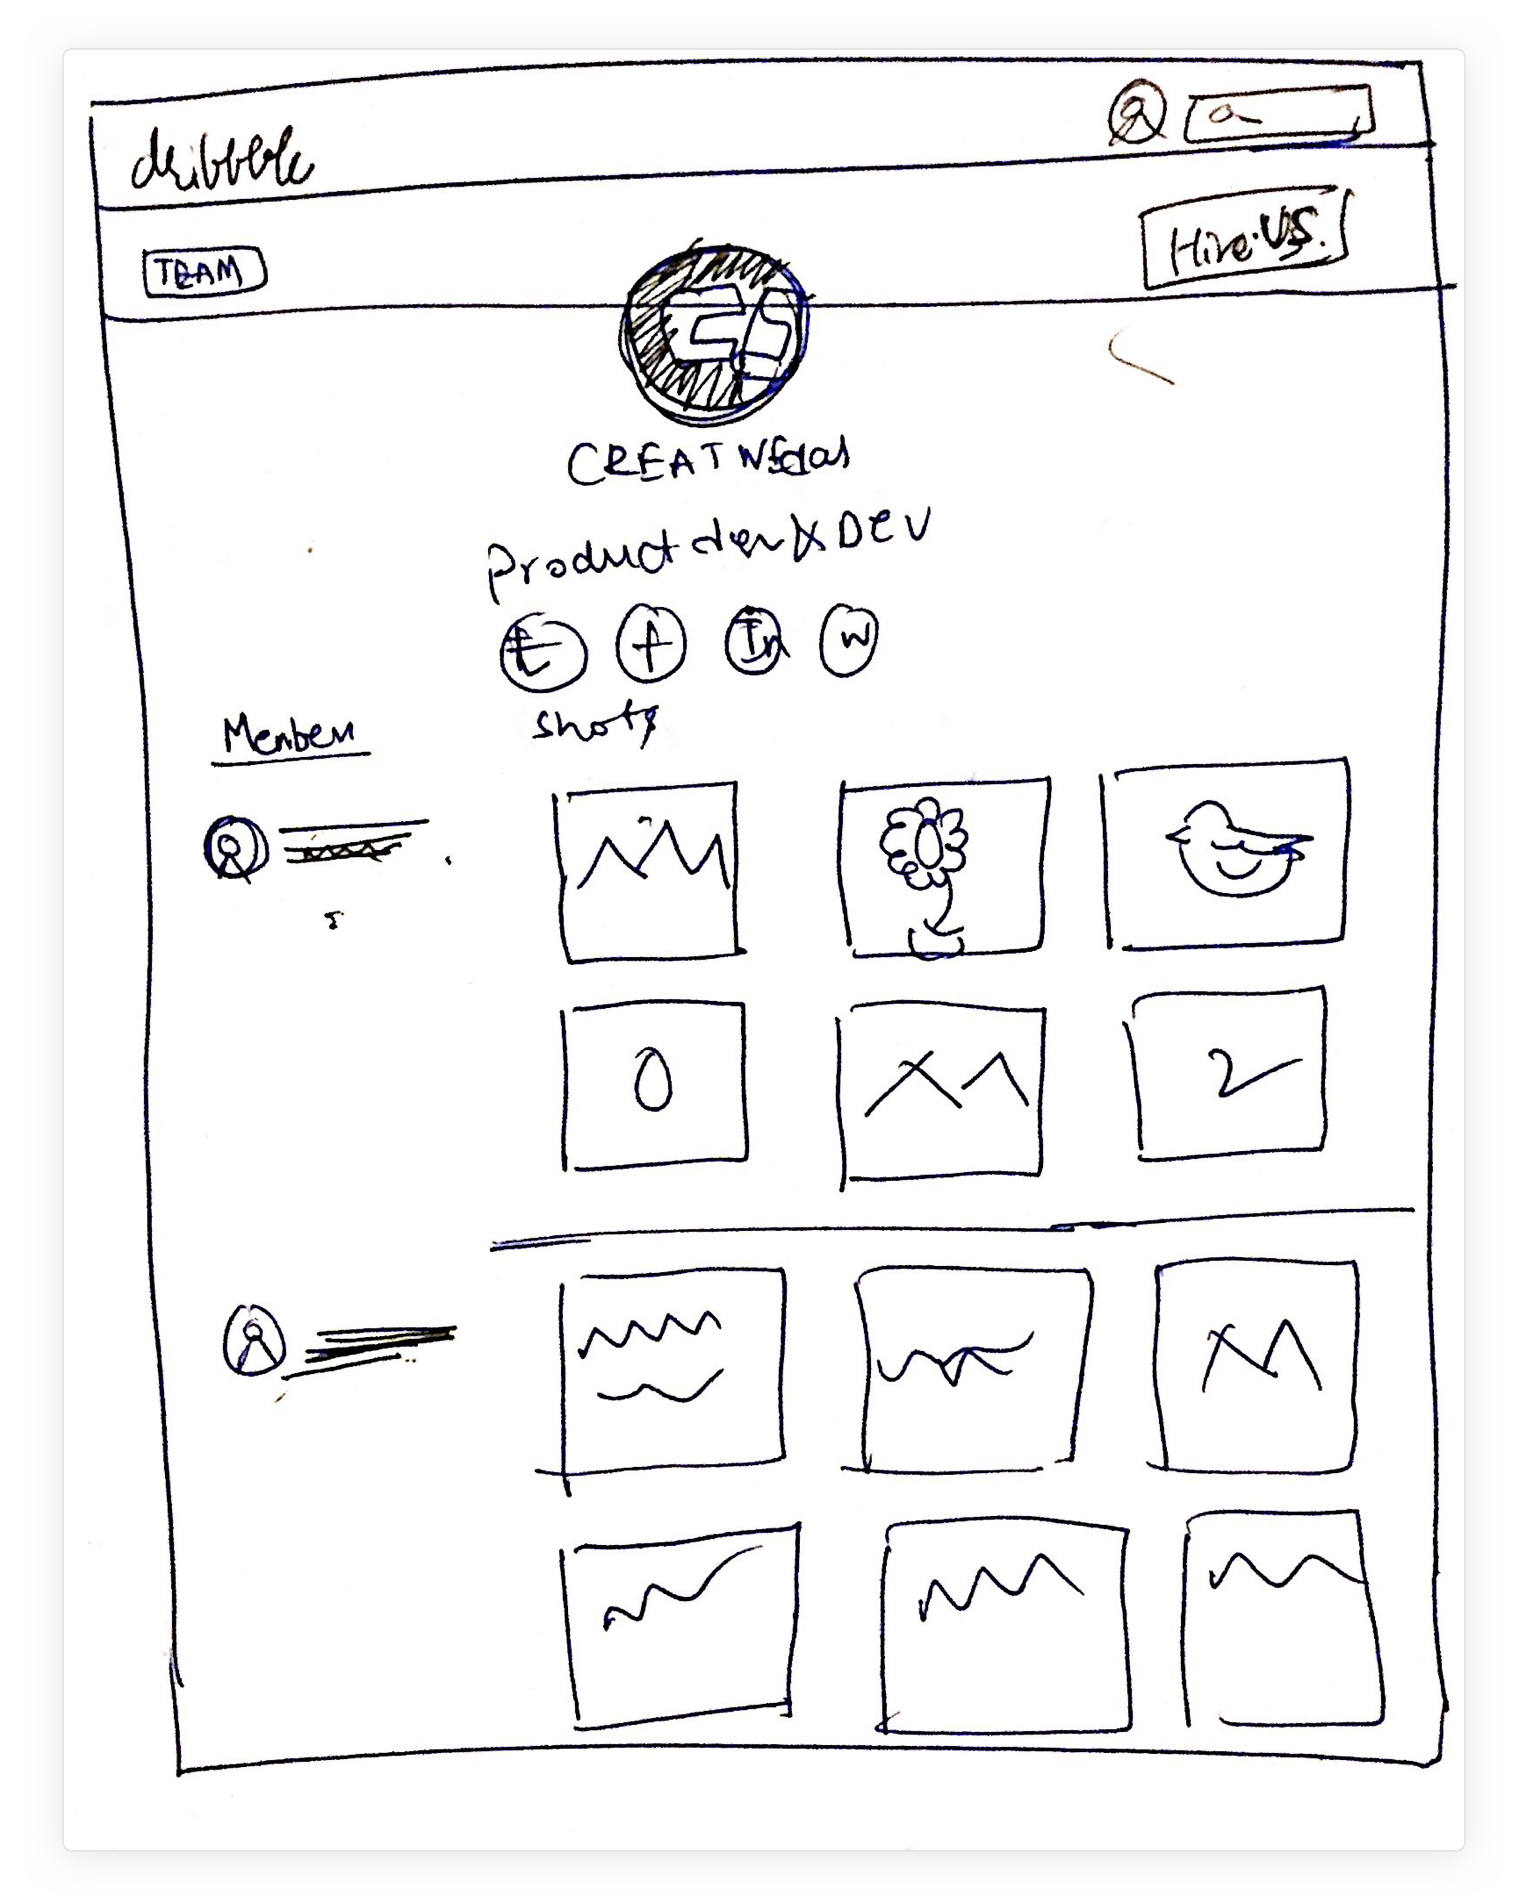 dribbble
TEAM
Hire US.
CS
Product den X DEV
t f In W
Members
Shots
0
2